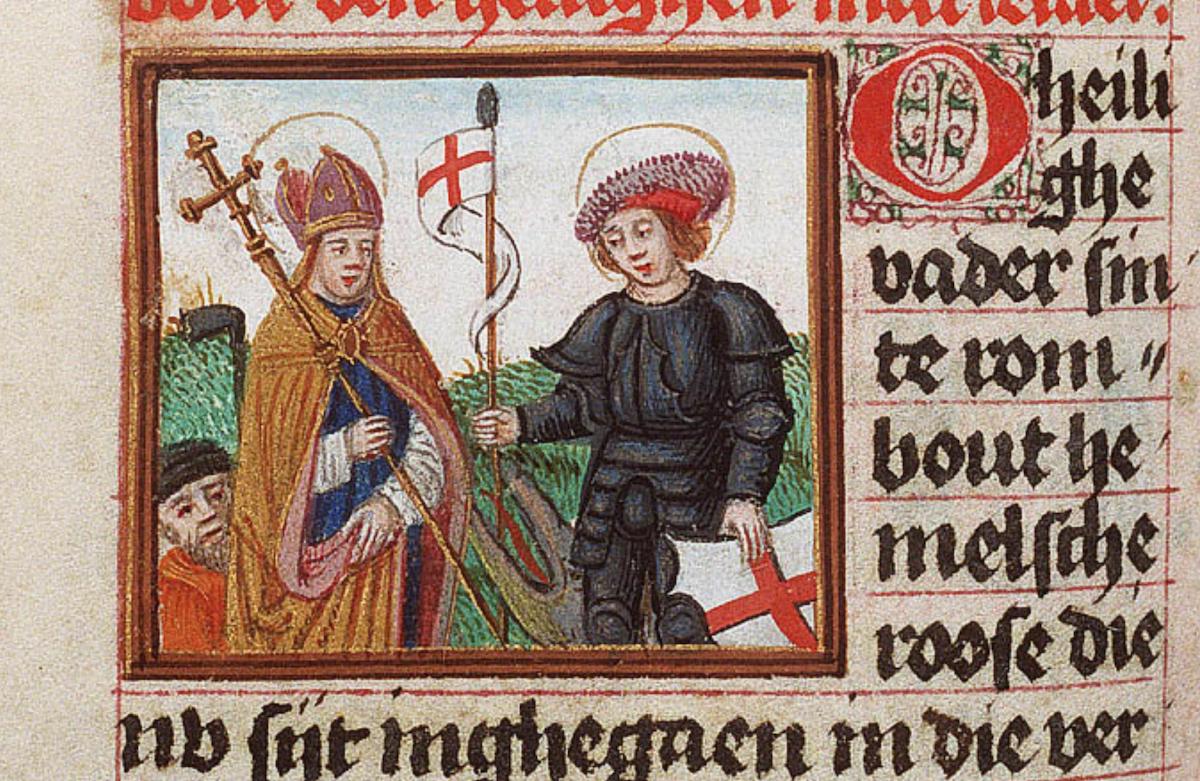 O heili
ghe
vader sin
te rom〃
bout he
melsche
roose die
nv sijt inghegaen in die ver